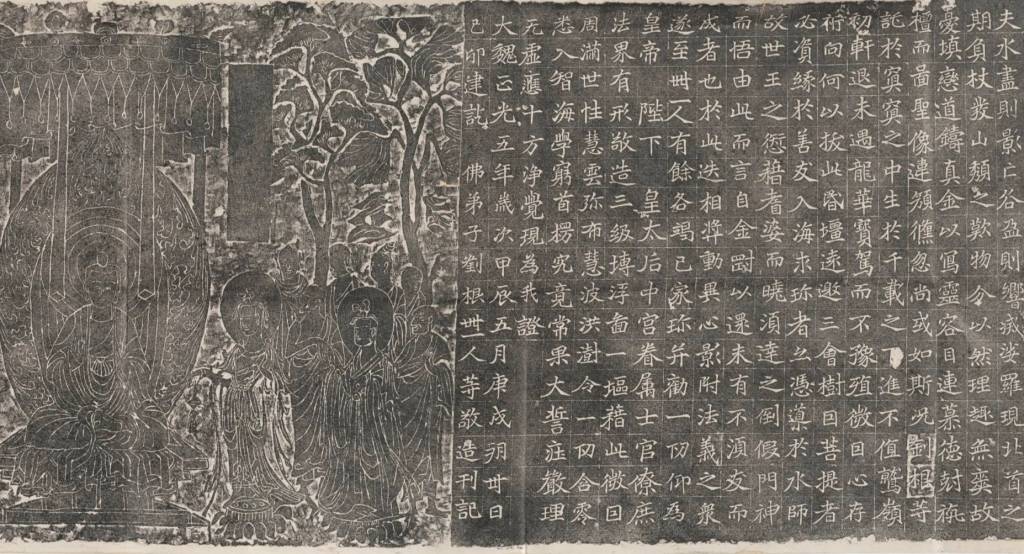 夫水盡則影亡谷盈則響滅娑羅現北首之
期負杖發山頹之歎物分以然理趣無爽故
憂填戀道鑄真金以寫靈容目連慕德刻栴
檀而啚聖像違顏倏忽尚或如斯況劉根等
託於冥冥之中生於千載之進不值鷲嶺
初軒退未遇龍華寶駕而不豫殖微因心存
祈向何以拔此昏壃遠邀三會樹因菩提者
必資緣於善友入海求珍者必憑導於水師
故世王之愆藉耆婆而曉須達之倒假門神
而悟由此而言自金剛以還未有不須友而
成者也於此迭相將動異心影附法義之衆
遂至卌人有餘各竭己家珍并勸一切仰為
皇帝陛下 皇太后中宮眷屬士官僚庶
法界有形敬造三級塼浮啚一塸藉此微因
周滿世性慧雲弥布慧波洪澍令一切含零
悉入智海學窮首楞究竟常果大誓莊嚴理
无虛應十方淨覺現為我證
大魏正光五年歲次甲辰五月庚戌朔卅日
己卯建訖 佛弟子劉根卌一人等敬造刊記